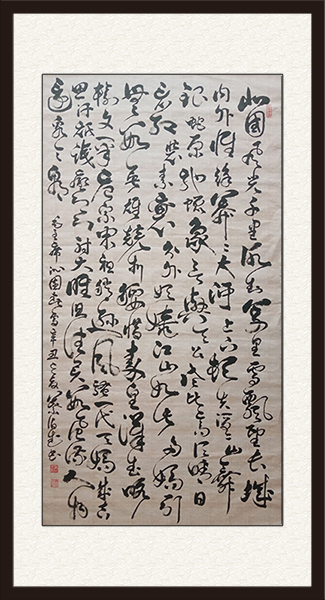 北国风光千里冰封万里雪飘望长城
内外惟余莽莽大河上下顿失滔滔山舞
银蛇原驰蜡象欲与天公试比高须晴日
看红装素裹分外妖娆江山如此多娇引
无数英雄竞折腰惜秦皇汉武略输
文采唐宗宋祖稍逊风骚一代天骄成吉
思汗只识弯弓射大雕俱往矣数风流人物
还看今朝
毛主席沁园春雪辛丑